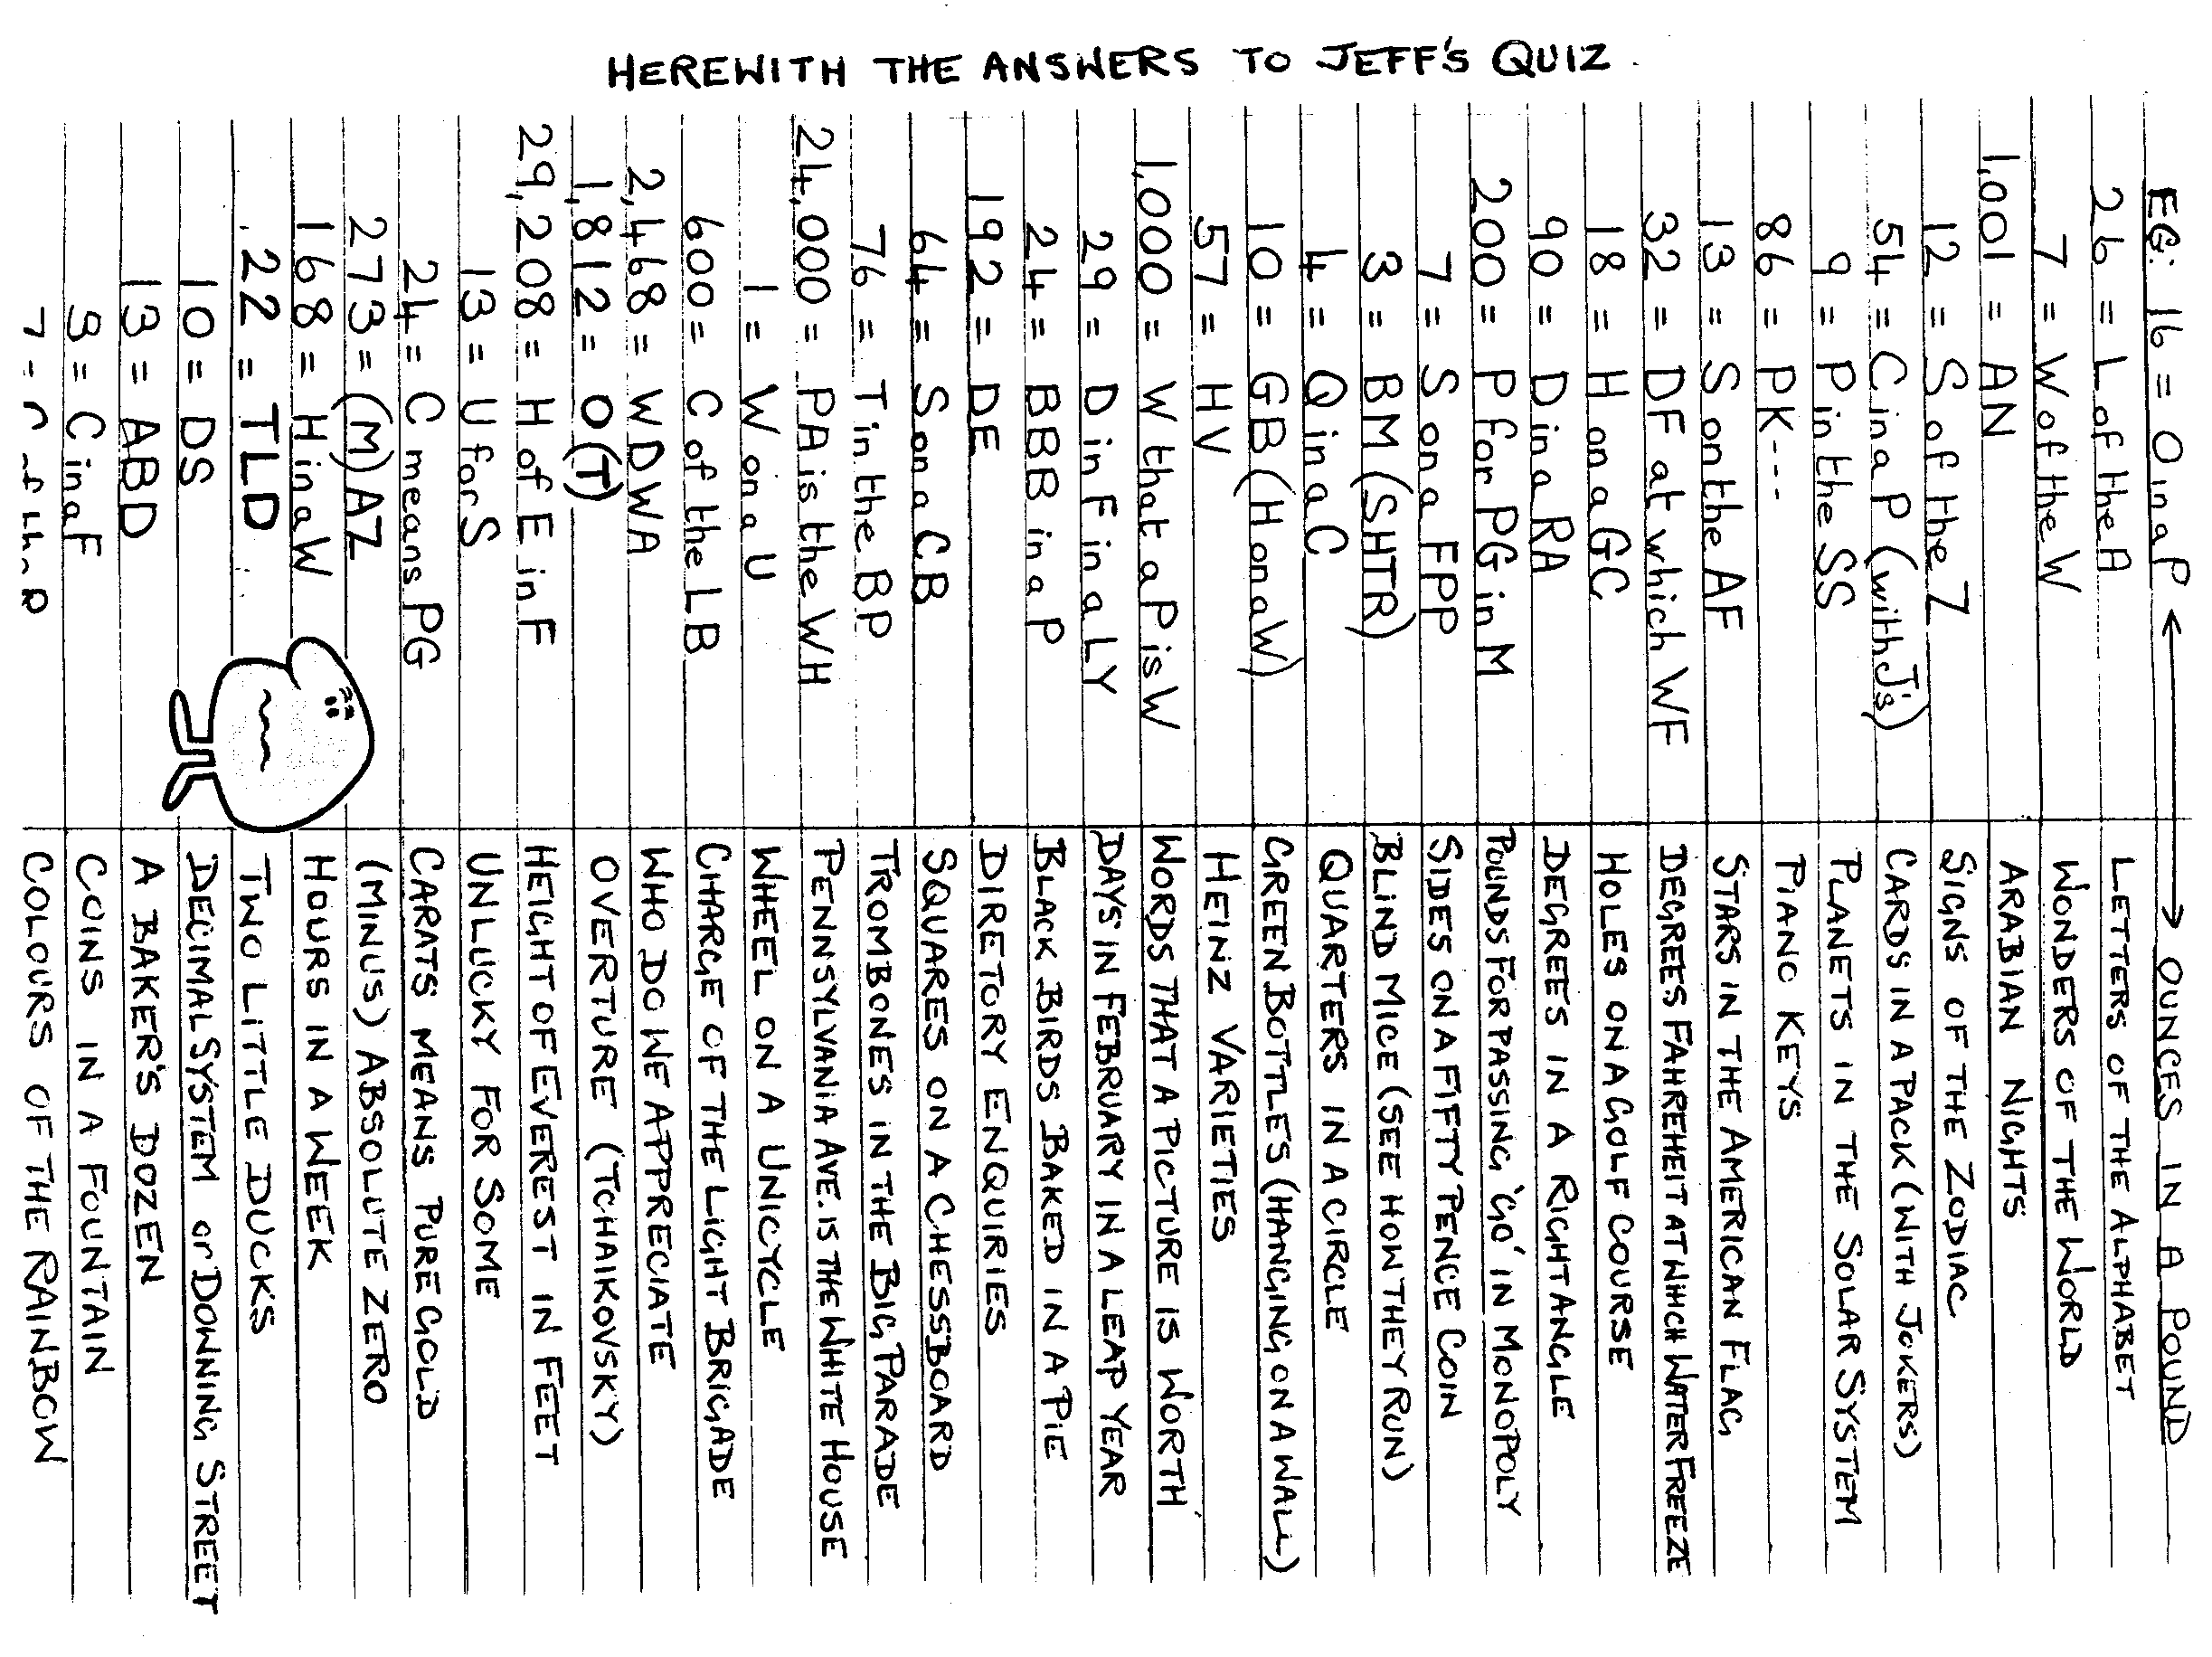 HEREWITH THE ANSWERS TO JEFF'S QUIZ.
EG: 16 = O in a P ↔ OUNCES IN A POUND
26 = L of the A LETTERS OF THE ALPHABET
7 = W of the W WONDERS OF THE WORLD
1,001 = AN ARABIAN NIGHTS
12 = S of the Z SIGNS OF THE ZODIAC
54 = C in a P (with J's) CARDS IN A PACK (WITH JOKERS)
9 = P in the SS PLANETS IN THE SOLAR SYSTEM
86 = PK--- PIANO KEYS
13 = S on the AF STARS IN THE AMERICAN FLAG
32 = DF at which WF DEGREES FAHREHEIT AT WHICH WATER FREEZE
18 = H on a GC HOLES ON A GOLF COURSE
90 = D in a RA DEGREES IN A RIGHT ANGLE
200 = P for PG in M POUNDS FOR PASSING 'GO' IN MONOPOLY
7 = S on a FPP SIDES ON A FIFTY PENCE COIN
3 = BM (SHTR) BLIND MICE (SEE HOW THEY RUN)
4 = Q in a C QUARTERS IN A CIRCLE
10 = GB (H on a W) GREEN BOTTLES (HANGING ON A WALL)
57 = HV HEINZ VARIETIES
1,000 = W that a P is W WORDS THAT A PICTURE IS WORTH
29 = D in F in a LY DAYS IN FEBRUARY IN A LEAP YEAR
24 = BBB in a P BLACK BIRDS BAKED IN A PIE
192 = DE DIRETORY ENQUIRIES
64 = S on a CB SQUARES ON A CHESSBOARD
76 = T in the BP TROMBONES IN THE BIG PARADE
24,000 = PA is the WH PENNSYLVANIA AVE. IS THE WHITE HOUSE
1 = W on a U WHEEL ON A UNICYCLE
600 = C of the LB CHARGE OF THE LIGHT BRIGADE
2,468 = WDWA WHO DO WE APPRECIATE
1,812 = O(T) OVERTURE (TCHAIKOVSKY)
29,208 = H of E in F HEIGHT OF EVEREST IN FEET
13 = U for S UNLUCKY FOR SOME
24 = C means PG CARATS MEANS PURE GOLD
273 = (M)AZ (MINUS) ABSOLUTE ZERO
168 = H in a W HOURS IN A WEEK
22 = TLD TWO LITTLE DUCKS
10 = DS DECIMAL SYSTEM or DOWNING STREET
13 = ABD A BAKER'S DOZEN
3 = C in a F COINS IN A FOUNTAIN
7 = C of the R COLOURS OF THE RAINBOW